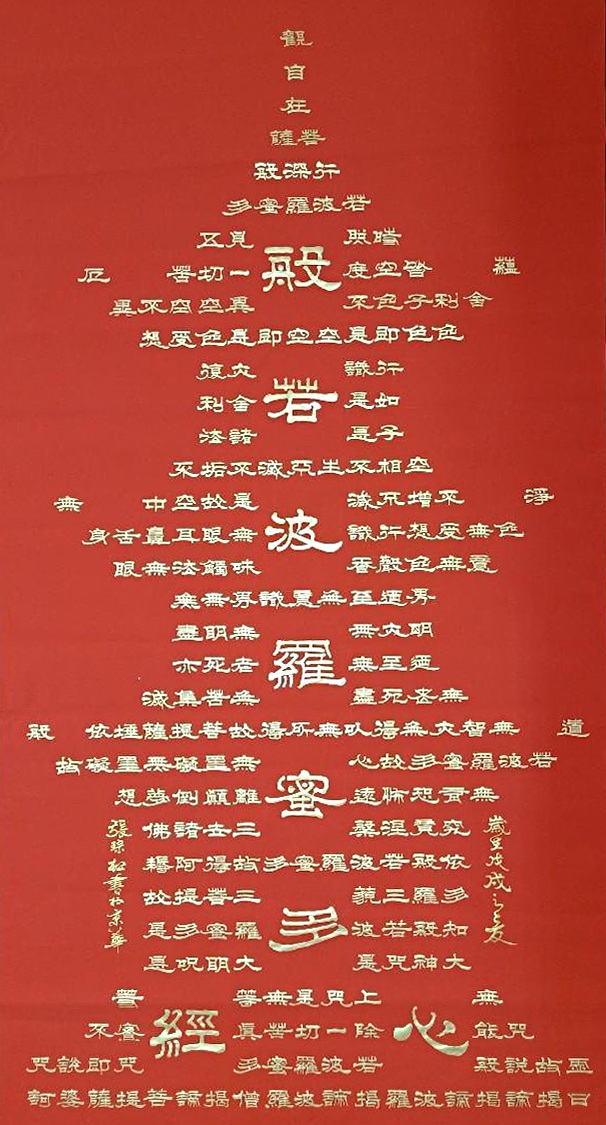 觀
自
在
菩薩
行深般
若波羅蜜多
時照見五
蘊皆空度一切苦厄
舍利子色不異空空不異
色色即是空空即是色受想
行識亦復
如是舍利
子是諸法
空相不生不滅不垢不
淨不增不減是故空中無
色無受想行識無眼耳鼻舌身
意無色聲香味觸法無眼
界迺至無意識界無無
明亦無無明盡
迺至無老死亦
無老死盡無苦集滅
道無智亦無得以無所得故菩提薩埵依般
若波羅蜜多故心無罣礙無罣礙故
無有恐怖遠離顛倒夢想
究竟涅槃三世諸佛
依般若波羅蜜多故得阿耨
多羅三藐三菩提故
知般若波羅蜜多是
大神咒是大明呪是
無上咒是無等等
咒能除一切苦真實不
虛故說般若波羅蜜多咒即說咒
曰揭諦揭諦波羅揭諦波羅僧揭諦菩提薩婆訶
般若波羅蜜多心經
戊戌之夏
張書於京華